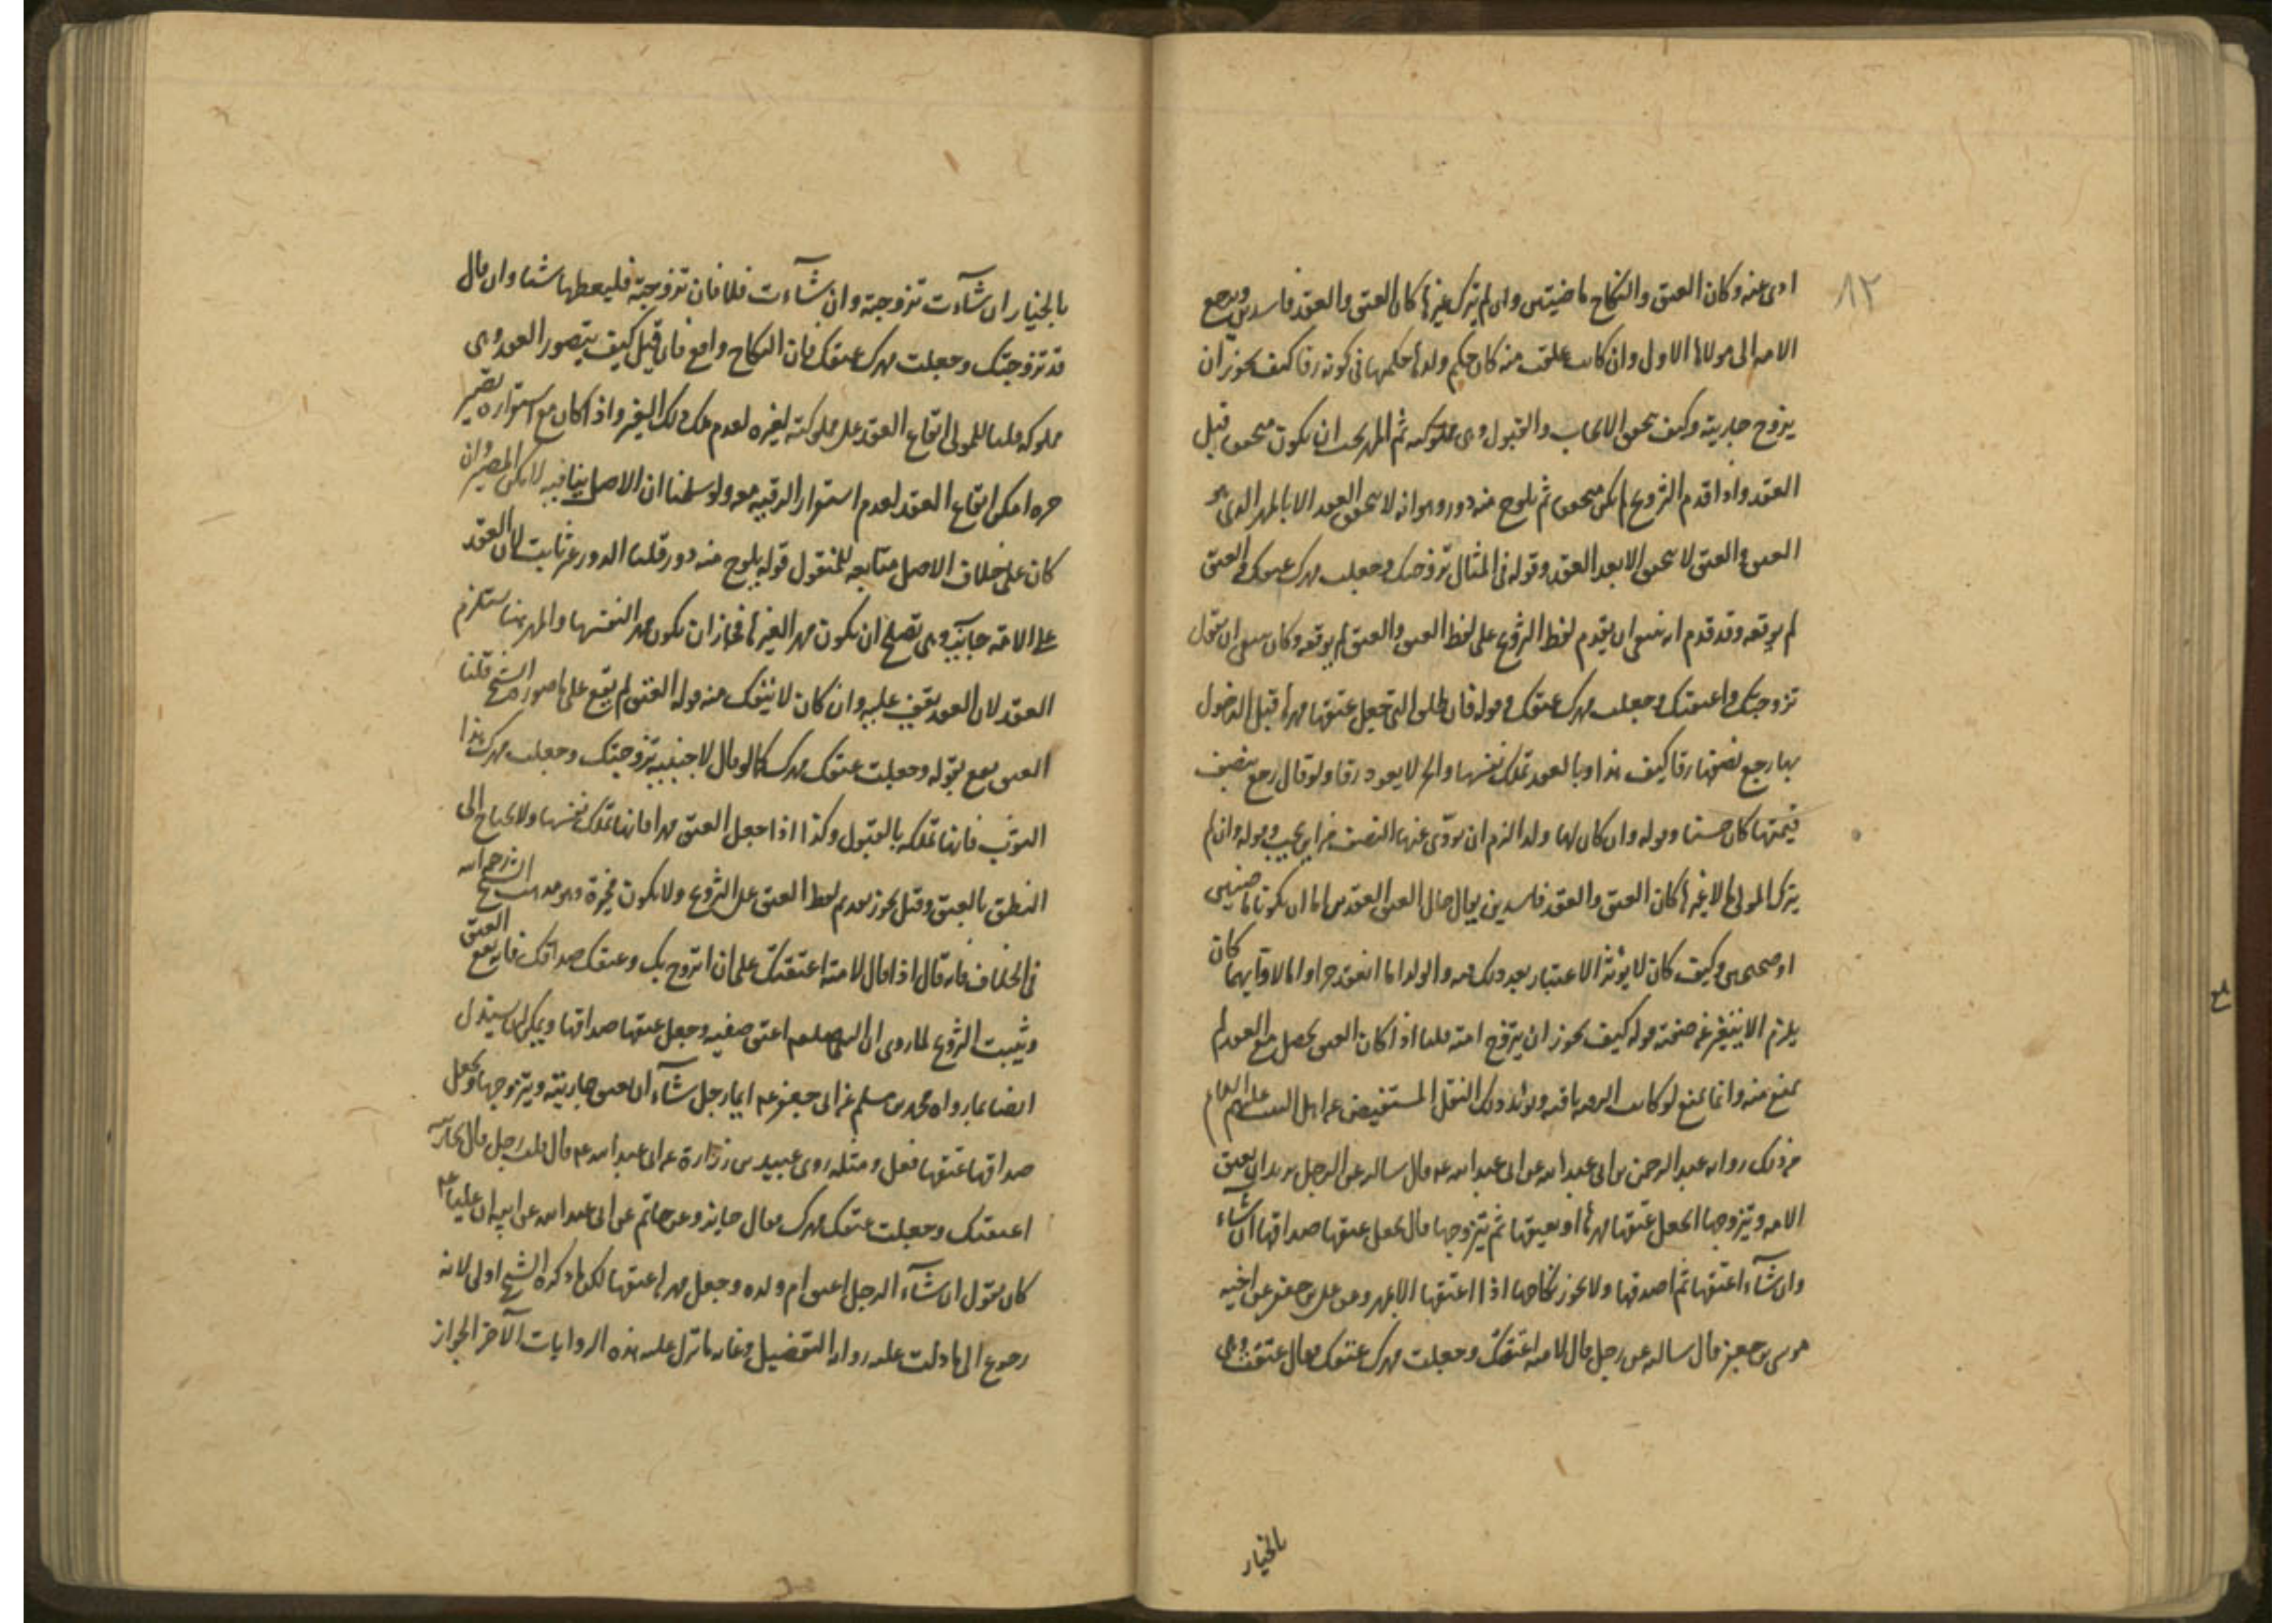 ٨٢
ادى عنه وكان العتق والنكاح ماضيتين وان لم يترك غيرها كان العتق والعقد فاسدين ويرجع
الامه الى مولاها الاول وان كانت علقت منه كان حكم ولدها حكمها فى كونه رقا كيف يجوز ان
يزوج جاريته وكيف يتحقق الايجاب والقبول وهى مملوكته ثم المهر يجب ان يكون متحقق قبل
العقد واذا قدم التزويج لم يكن متحقق ثم يلوح منه دور وهو انه لا يتحقق العقد الا بالمهر الذى هو
العتق والعتق لا يتحقق الا بعد العقد وقوله فى المثال تزوجتك وجعلت مهرك عتقك والعتق
لم يوقعه وقد قدم انه ينبغى ان يقدم لفظ التزويج على لفظ العتق والعتق لم يوقعه وكان ينبغى ان يقول
تزوجتك واعتقتك وجعلت مهرك عتقك وقوله فان طلق التى جعل عتقها مهرها قبل الدخول
بها رجع نصفها رقا كيف هذا وبالعقد تملك نفسها والحر لا يعود رقا ولو قال رجع بنصف
قيمتها كان حسنا وقوله وان كان لها ولد الزم ان يودى عنها النصف من اين يجب وقوله وان لم
يترك المولى مالا غيرها كان العتق والعقد فاسدين يقال حال العتق العقد من اما ان يكونا ماضيين
او صحيحين وكيف كان لا يؤثر الاعتبار بعد ذلك فيه والولد اما انعقد حرا واما لا وايهما كان
يلزم الا يتغير عن صفته قوله كيف يجوز ان يتزوج امته قلنا اذا كان العتق يحصل مع العقد لم
يمتنع منه وانما يمتنع لو كانت الرقيه باقيه ويؤيد ذلك النقل المستفيض عن اهل البيت عليهم السلام
من ذلك روايه عبد الرحمن بن ابى عبد الله عن ابى عبد الله عه قال سالته عن الرجل يريد ان يعتق
الامه ويتزوجها ايجعل عتقها مهرها او يعتقها ثم يتزوجها قال يجعل عتقها صداقها ان شاء
وان شآء اعتقها ثم اصدقها ولا يجوز نكاحها اذا اعتقها الا بمهر وعن على بن جعفر عن اخيه
موسى بن جعفر قال سالته عن رجل قال لامته اعتقتك وجعلت مهرك عتقك فقال عتقت وهى
بالخيار
بالخيار ان شآءت تزوجته وان شآءت فلا فان تزوجته فليعطها شئا وان قال
قد تزوجتك وجعلت مهرك عتقك فان النكاح واقع فان قيل كيف يتصور العقد وهى
مملوكه قلنا للمولى ايقاع العقد على مملوكته لغيره لعدم ملك ذلك الغير واذا كان مع استقراره يصير
حره امكن ايقاع العقد لعدم استقرار الرقيه معه ولو سلمنا ان الاصل ينافيه لامكن المصير وان
كان على خلاف الاصل متابعه للمنقول قوله يلوح منه دور قلنا الدور غير ثابت لان العقد
على الامه جايز وهى تصلح ان يكون مهرا لغيرها فجاز ان يكون مهرا لنفسها والمهر هنا يستلزم
العقد لان العقد يقف عليه وان كان لا ينفك منه قوله العتق لم يقع على ما صوره الشيخ قلنا
العتق يقع بقوله وجعلت عتقك مهرك كما لو قال لاجنبيه تزوجتك وجعلت مهرك هذا
الثوب فانها تملكه بالقبول وكذا اذا جعل العتق مهرا فانها تملك نفسها ولا يحتاج الى
النطق بالعتق وقيل يجوز تقديم لفظ العتق على التزويج ولا يكون مخيرة وهو مذهب الشيخ رحمه الله
فى الخلاف فانه قال اذا قال لامته اعتقتك على ان اتزوج بك وعتقك صداقك فانه يقع العتق
ويثبت التزويج لما روى ان النبى صلعم اعتق صفيه وجعل عتقها صداقها ويمكن ان يستدل
ايضا بما رواه محمد بن مسلم عن ابى جعفر عه ايما رجل شآء ان يعتق جاريته ويتزوجها ويجعل
صداقها عتقها فعل ومثله روى عبيد بن زرارة عن ابى عبد الله عه قال قلت رجل قال لجاريته
اعتقتك وجعلت عتقك مهرك فقال جايز وعن حاتم عن ابى عبد الله عن ابيه ان عليا عه
كان يقول ان شآء الرجل اعتق ام ولده وجعل مهرها عتقها لكن ما ذكره الشيخ اولى لانه
رجوع الى ما دلت عليه روايه التفضيل وغايه ما تدل عليه هذه الروايات الآخر الجواز